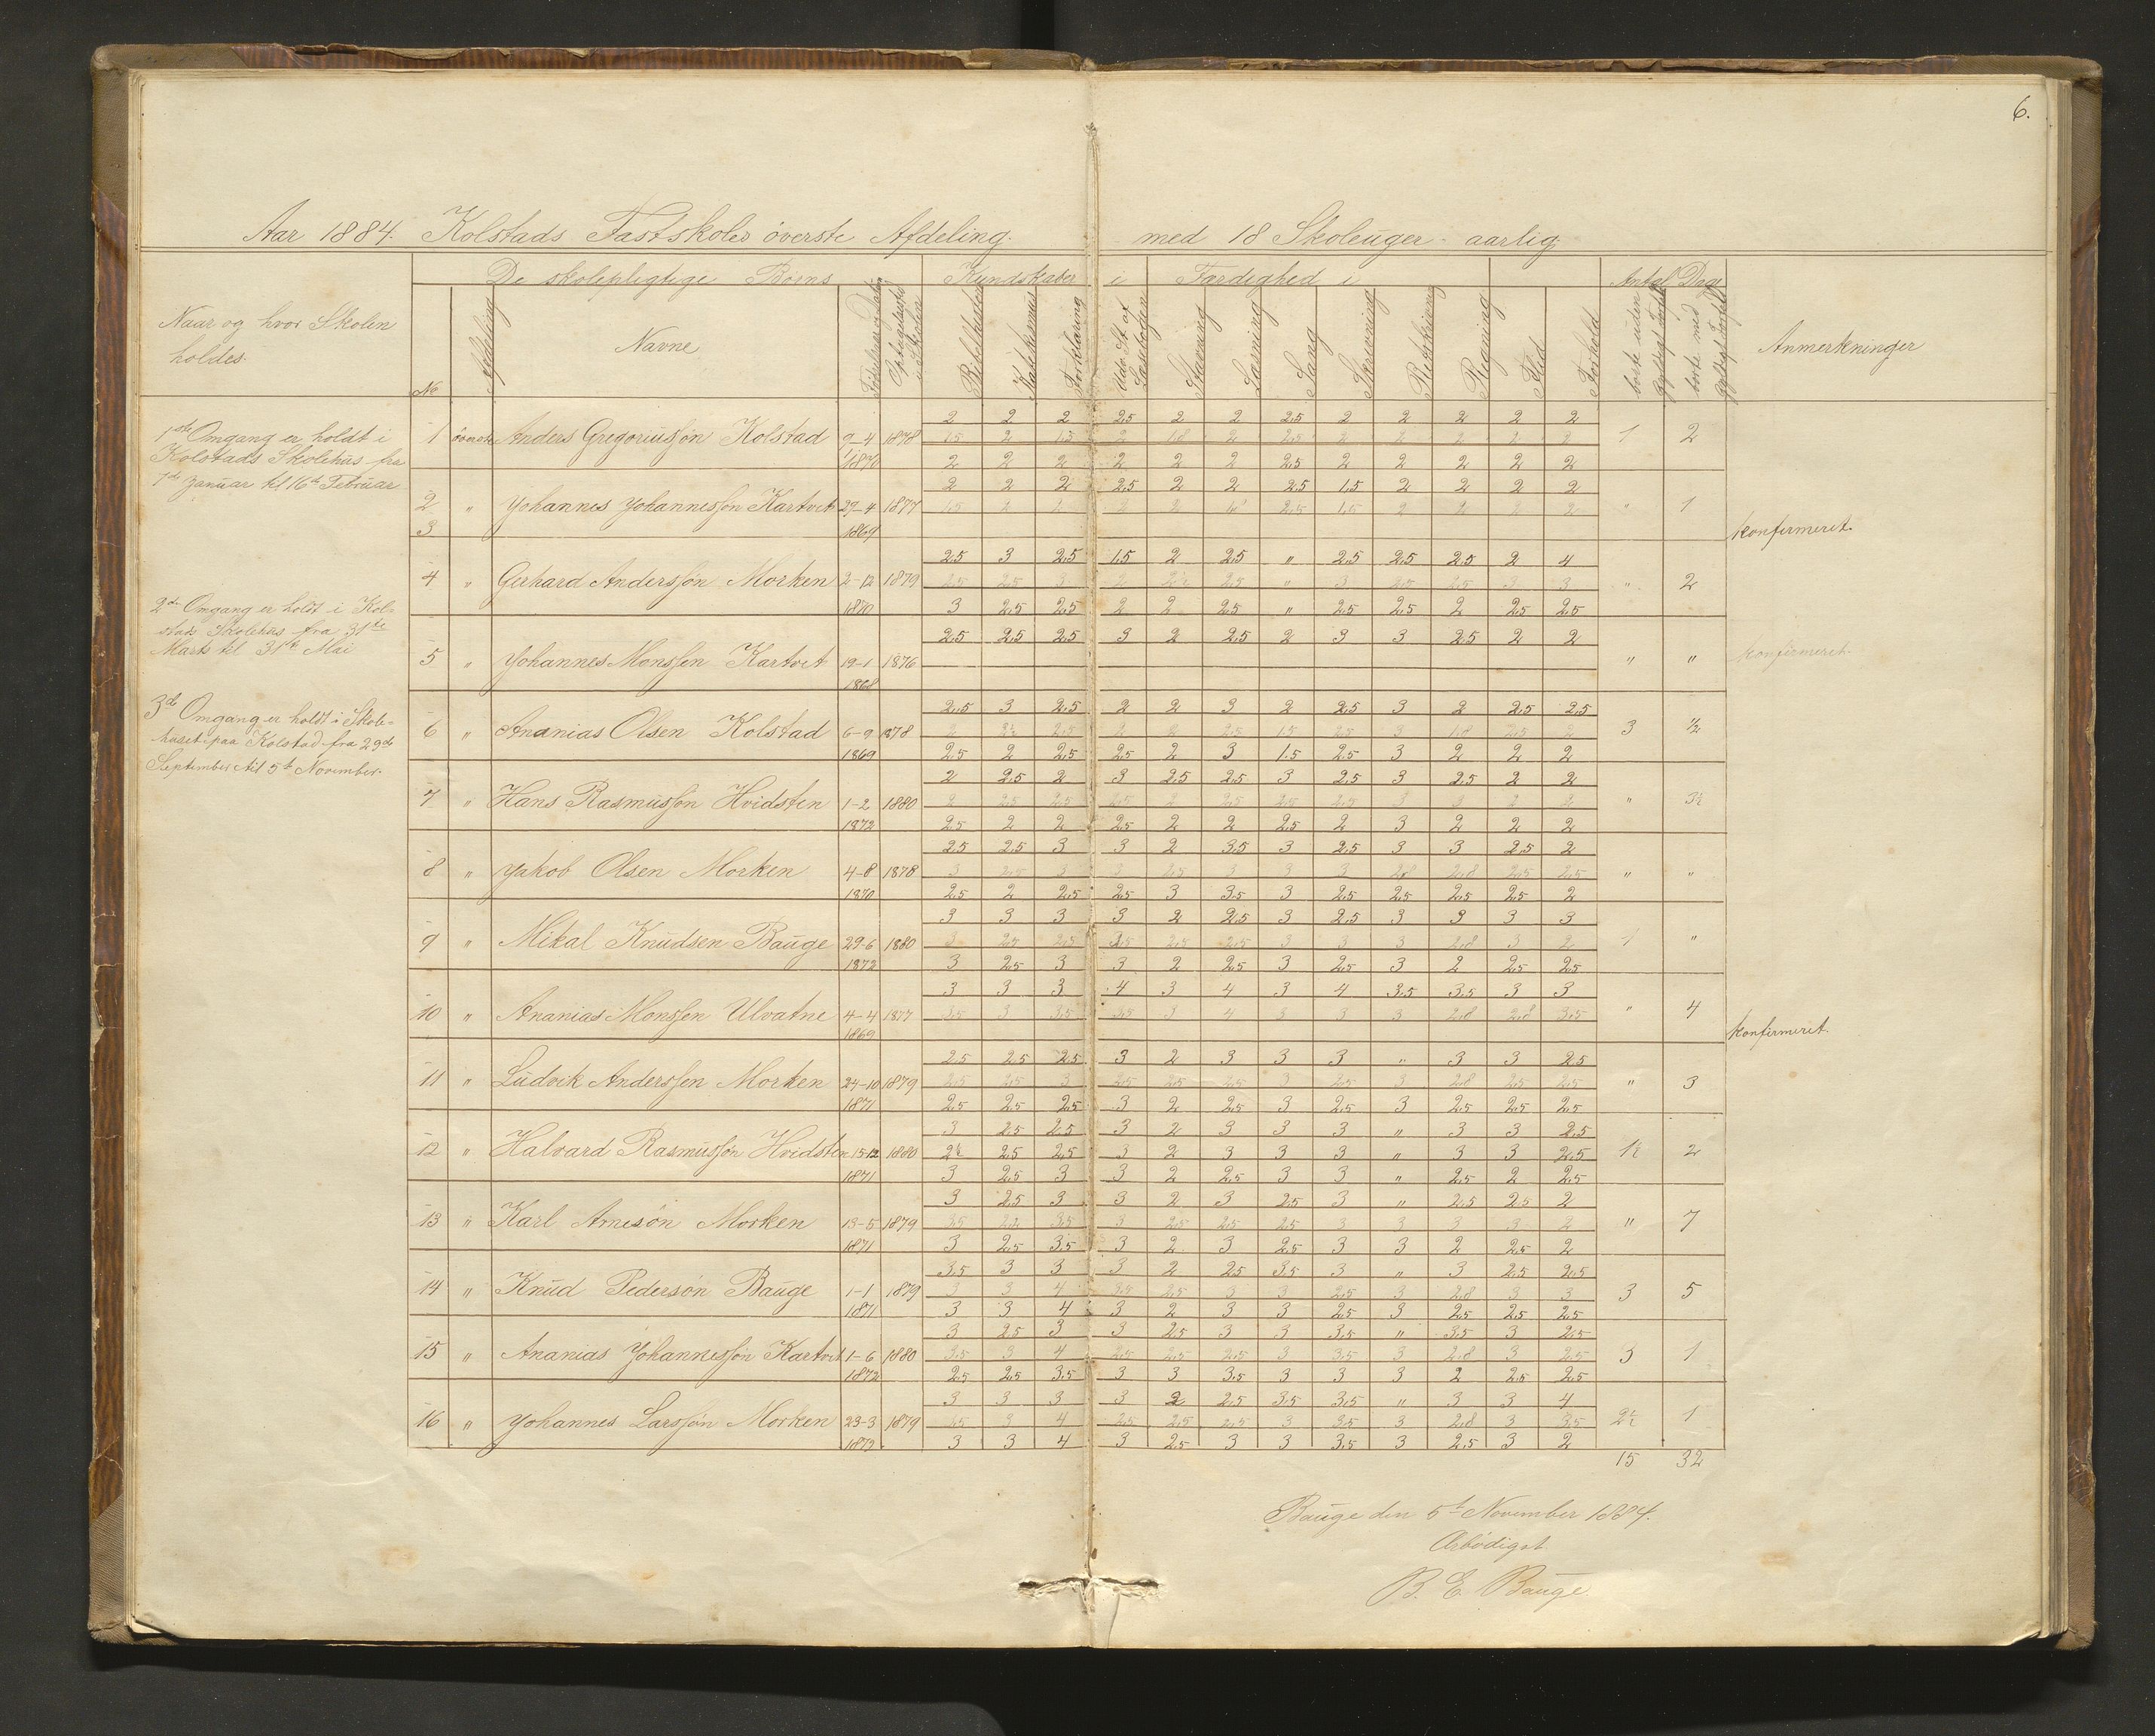 6.
Aar 1884. Kolstads Fastskoles överste Afdeling. med 18 Skoleuger aarlig.
De skolepligtige Børns Kundskaber i Færdighed i Antal Dage
Naar og hvor Skolen
holdes.
No Afdeling Navne Bibelhistorie Katekismus Forklaring Læsebogen Stavning Læsning Sang Skrivning Retskrivning Regning Flid Forhold Anmerkninger
1ste Omgang er holdt i
Kolstads Skolehus fra
7de Januar til 16de Februar
2den Omgang er holdt i Kol-
stads Skolehus fra 31te
Marts til 31te Mai
3die Omgang er holdt i Skole-
huset paa Kolstad fra 29de
September til 5te November.
2 2 2 2,5 2 2 2,5 2 2 2 2 2
1 överste Anders Gregoriussøn Kolstad 9-4 1878 1,5 2 1,5 2 1,8 2 2,5 2 2 2 2 2 1 2
1870 2 2 2 2 2 2 2,5 2 2 2 2 2
2 2 2 2,5 2 2 2,5 1,5 2 2 2 2
2 " Johannes Johannessøn Kartveit 29-4 1877 " 1
3 1869 konfirmeret.
2,5 3 2,5 1,5 2 2,5 " 2,5 2,5 2,5 2 4
4 " Gerhard Anderssøn Morken 2-12 1879 " 2
1870 3 2,5 2,5 2 2 2,5 " 2,5 2,5 2 2,5 2,5
2,5 2,5 2,5 3 2 2,5 2 3 3 2,5 2 2
5 " Johannes Monssen Kartvet 19-1 1876 " " konfirmeret.
1868
2,5 3 2,5 2 2 3 2 2,5 3 2 2,5 2,5
6 " Ananias Olsen Kolstad 6-9 1878 3 1/2
1869 2,5 2 2,5 2,5 2 3 1,5 2,5 3 2 2 2
2 2,5 2 3 2,5 2,5 3 2,5 3 2,5 2 2
7 " Hans Rasmussøn Hvidsten 1-2 1880 " 3½
1872 2,5 2 2 2,5 2 2 2,5 2 3 2 2 2
2,5 2,5 3 3 2 3,5 3 2,5 3 3 2,5 2
8 " Jakob Olsen Morken 4-8 1878 3 2,5 3 3 2,5 3 3 3 2,8 2,8 2,5 2,5 " "
1870 2,5 2 2,5 2,5 3 3,5 3 2,5 2,5 2,5 2,5 2
3 3 3 3 2 2,5 3 2,5 3 3 3 3
9 " Mikal Knudsen Bauge 29-6 1880 3 2,5 2,5 2,5 2,5 2,5 3 3 3 2,8 3 2 1 "
1872 3 2,5 3 3 2 2,5 3 2,5 3 2 2,5 2,5
3 3 3 4 3 4 3 4 3,5 3,5 3 3
10 " Ananias Monssen Ulvatne 4-4 1877 3,5 3 3,5 3,5 3 4 3 3 3 2,8 2,8 3,5 " 4
1869 konfirmeret.
2,5 2,5 2,5 3 2 3 3 3 " 3 3 2,5
11 " Ludvik Anderssen Morken 24-10 1879 2,5 2,5 3 2,5 2,5 2,5 3 2,5 3 2,8 2,5 2,5 " 3
1871 2,5 2,5 2,5 3 2 2,5 3 2,5 3 2,5 2,5 2,5
3 2,5 2,5 3 2 3 3 3 " 3 3 2,5
12 " Halvard Rasmussøn Hvidsten 15-12 1880 2½ 2,5 2,5 3 2 3 3 3 " 3 3 2,5 1½ 2
1871 3 2,5 3 3 2 2,5 3 3 " 2,5 2 2,5
3 2,5 3 3 2 3 2,5 3 " 2,5 2,5 2
13 " Karl Arnesön Morken 13-5 1879 3 2,5 2,5 2,5 3 3 3 3 2 " 7
1871 3 2,5 3,5 3 2 3 2,5 3 3 2 2,5 2
3,5 3 3 3 2 2,5 3,5 3 " 3 2,5 2,5
14 " Knud Pedersön Bauge 1-1 1879 3 3 4 2,5 2,5 3 3 2,5 3 2,8 3 3 3 5
1871 3 3 4 3 2 3 3 2,5 3 2,5 2,5 2,5
3 2,5 3 3 2,5 3 3 3,5 " 3,5 3 2,5
15 " Ananias Johannessøn Kartvet 1-6 1880 3,5 3 4 2,5 2,5 2,5 3 3,5 3 2,8 3 2,5 3 1
1872 2,5 2,5 3,5 3 3 3,5 3 3 3 2 2,5 2,5
3 3 3 3 2 2,5 3,5 3,5 " 3 3 4
16 " Johannes Larssøn Morken 23-3 1879 3 4 2,5 2,5 2,5 3 3,5 3 2,8 3 3,5 2½ 1
1872 3 3 4 3 2,5 3 3 3,5 3 2,5 3 2
15 32
Bauge den 5te November 1884.
Ærbödigst
B. E. Bauge.